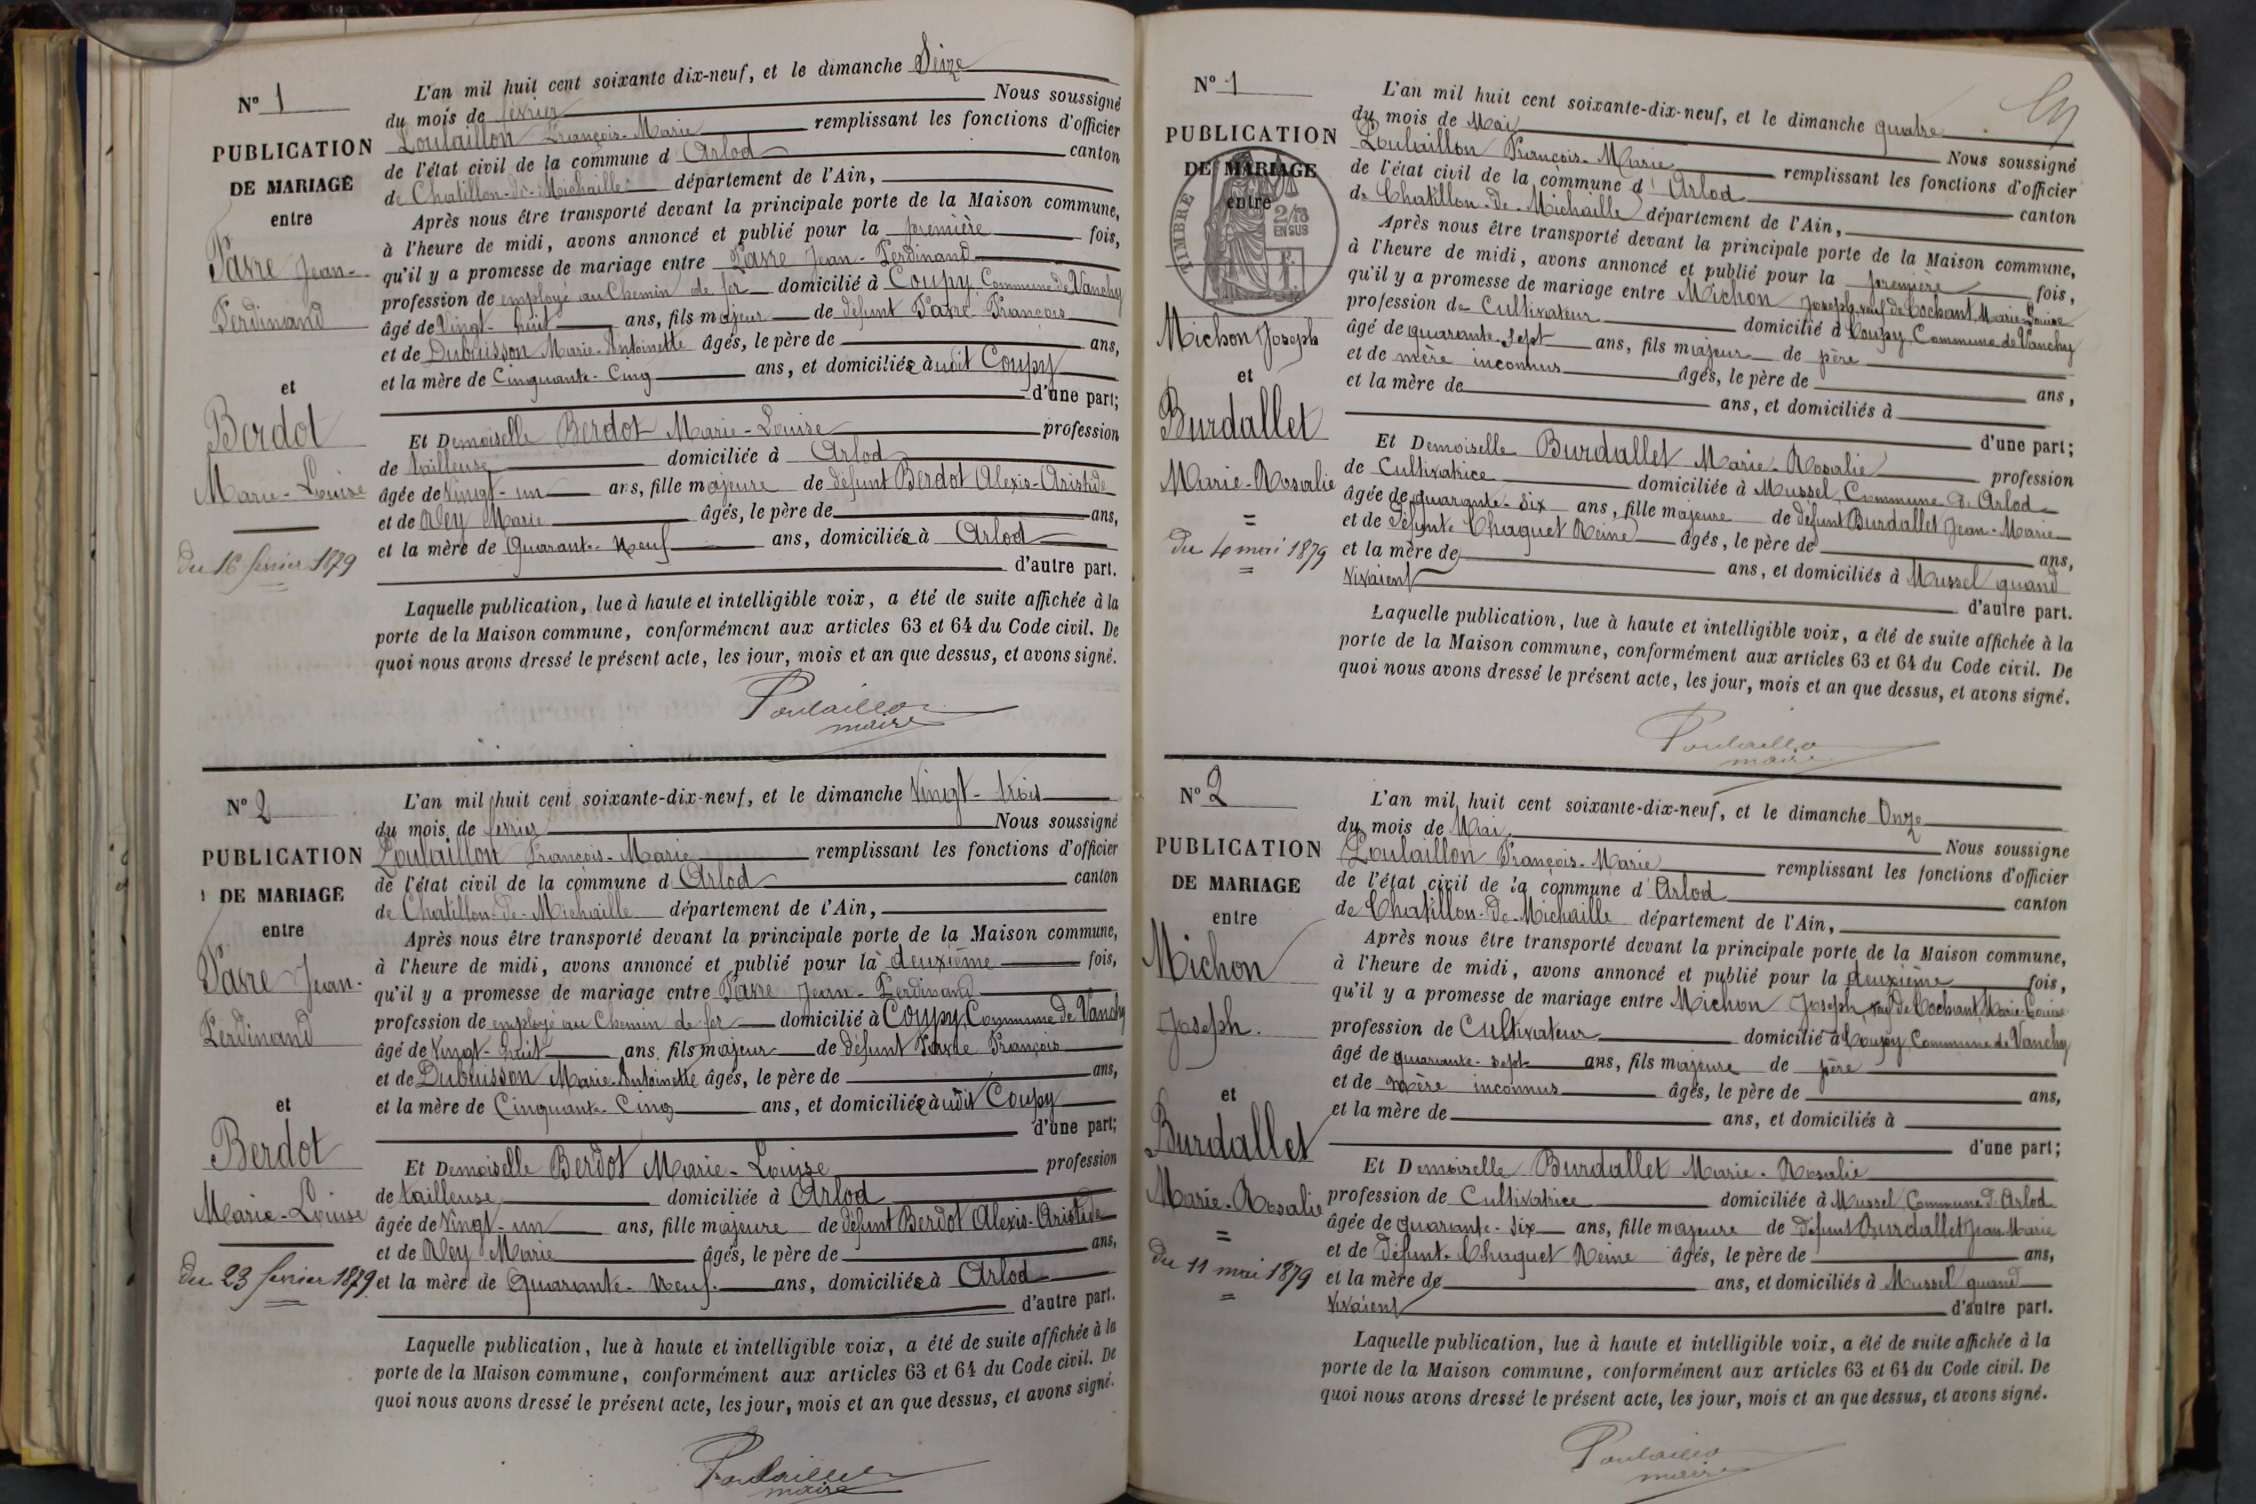 N° 1
PUBLICATION
DE MARIAGE
entre
Pavre Jean-
Ferdinand
et
Berdot
Marie-Louise
du 16 février 1879
L'an mil huit cent soixante dix-neuf, et le dimanche Seize
du mois de février Nous soussigné
Poulaillon François-Marie remplissant les fonctions d'officier
de l'état civil de la commune d Arlod canton
de Chatillon-de-Michaille département de l'Ain,
Après nous être transporté devant la principale porte de la Maison commune,
à l'heure de midi, avons annoncé et publié pour la première fois,
qu'il y a promesse de mariage entre Pavre Jean-Ferdinand
profession de employé au Chemin de fer domicilié à Coupy Commune de Vanchy
âgé de Vingt-huit ans, fils majeur de défunt Pavre François
et de Dubuisson Marie-Antoinette âgés, le père de ans,
et la mère de Cinquante-Cinq ans, et domiciliés audit Coupy
d'une part;
Et Demoiselle Berdot Marie-Louise profession
de tailleuse domiciliée à Arlod
âgée de Vingt-un ans, fille majeure de défunt Berdot Alexis-Aristide
et de Rey Marie âgés, le père de ans,
et la mère de Quarante-Neuf ans, domiciliés à Arlod
d'autre part.
Laquelle publication, lue à haute et intelligible voix, a été de suite affichée à la
porte de la Maison commune, conformément aux articles 63 et 64 du Code civil. De
quoi nous avons dressé le présent acte, les jour, mois et an que dessus, et avons signé.
Poulaillon
maire
N° 2
PUBLICATION
DE MARIAGE
entre
Pavre Jean-
Ferdinand
et
Berdot
Marie-Louise
du 23 fevrier 1879
L'an mil huit cent soixante-dix-neuf, et le dimanche Vingt-trois
du mois de fevrier Nous soussigné
Poulaillon François-Marie remplissant les fonctions d'officier
de l'état civil de la commune d Arlod canton
de Chatillon-de-Michaille département de l'Ain,
Après nous être transporté devant la principale porte de la Maison commune,
à l'heure de midi, avons annoncé et publié pour la deuxième fois,
qu'il y a promesse de mariage entre Pavre Jean-Ferdinand
profession de employé au Chemin de fer domicilié à Coupy, Commune de Vanchy
âgé de Vingt-huit ans, fils majeur de défunt Pavre François
et de Dubuisson Marie-Antoinette âgés, le père de ans,
et la mère de Cinquante-Cinq ans, et domiciliés audit Coupy
d'une part;
Et Demoiselle Berdot Marie-Louise profession
de tailleuse domiciliée à Arlod
âgée de Vingt-un ans, fille majeure de défunt Berdot Alexis-Aristide
et de Rey Marie âgés, le père de ans,
et la mère de Quarante-Neuf ans, domiciliés à Arlod
d'autre part.
Laquelle publication, lue à haute et intelligible voix, a été de suite affichée à la
porte de la Maison commune, conformément aux articles 63 et 64 du Code civil. De
quoi nous avons dressé le présent acte, les jour, mois et an que dessus, et avons signé.
Poulaillon
maire
N° 1
PUBLICATION
DE MARIAGE
entre
TIMBRE
2/10
EN SUS
Michon Joseph
et
Burdallet
Marie-Rosalie
du 4 mai 1879
L'an mil huit cent soixante-dix-neuf, et le dimanche quatre
du mois de Mai Nous soussigné
Poulaillon François-Marie remplissant les fonctions d'officier
de l'état civil de la commune d' Arlod canton
de Chatillon-de-Michaille département de l'Ain,
Après nous être transporté devant la principale porte de la Maison commune,
à l'heure de midi, avons annoncé et publié pour la première fois,
qu'il y a promesse de mariage entre Michon Joseph, veuf de Cochant Marie-Louise
profession de Cultivateur domicilié à Coupy Commune de Vanchy
âgé de quarante-sept ans, fils majeur de père
et de mère inconnus âgés, le père de ans,
et la mère de ans, et domiciliés à
d'une part;
Et Demoiselle Burdallet Marie-Rosalie profession
de Cultivatrice domiciliée à Mussel, Commune d'Arlod
âgée de quarante-six ans, fille majeure de défunt Burdallet Jean-Marie
et de défunte Chaquet Reine âgés, le père de ans,
et la mère de ans, et domiciliés à Mussel quand
vivaient d'autre part.
Laquelle publication, lue à haute et intelligible voix, a été de suite affichée à la
porte de la Maison commune, conformément aux articles 63 et 64 du Code civil. De
quoi nous avons dressé le présent acte, les jour, mois et an que dessus, et avons signé.
Poulaillon
maire
N° 2
PUBLICATION
DE MARIAGE
entre
Michon
Joseph.
et
Burdallet
Marie-Rosalie
du 11 mai 1879
L'an mil huit cent soixante-dix-neuf, et le dimanche Onze
du mois de Mai Nous soussigné
Poulaillon François-Marie remplissant les fonctions d'officier
de l'état civil de la commune d' Arlod canton
de Chatillon-de-Michaille département de l'Ain,
Après nous être transporté devant la principale porte de la Maison commune,
à l'heure de midi, avons annoncé et publié pour la deuxième fois,
qu'il y a promesse de mariage entre Michon Joseph, veuf de Cochant Marie-Louise
profession de Cultivateur domicilié à Coupy Commune de Vanchy
âgé de quarante-sept ans, fils majeure de père
et de mère inconnus âgés, le père de ans,
et la mère de ans, et domiciliés à
d'une part;
Et Demoiselle Burdallet Marie-Rosalie
profession de Cultivatrice domiciliée à Mussel, Commune d'Arlod
âgée de quarante-six ans, fille majeure de défunt Burdallet Jean Marie
et de défunte Chaquet Reine âgés, le père de ans,
et la mère de ans, et domiciliés à Mussel quand
vivaient d'autre part.
Laquelle publication, lue à haute et intelligible voix, a été de suite affichée à la
porte de la Maison commune, conformément aux articles 63 et 64 du Code civil. De
quoi nous avons dressé le présent acte, les jour, mois et an que dessus, et avons signé.
Poulaillon
maire